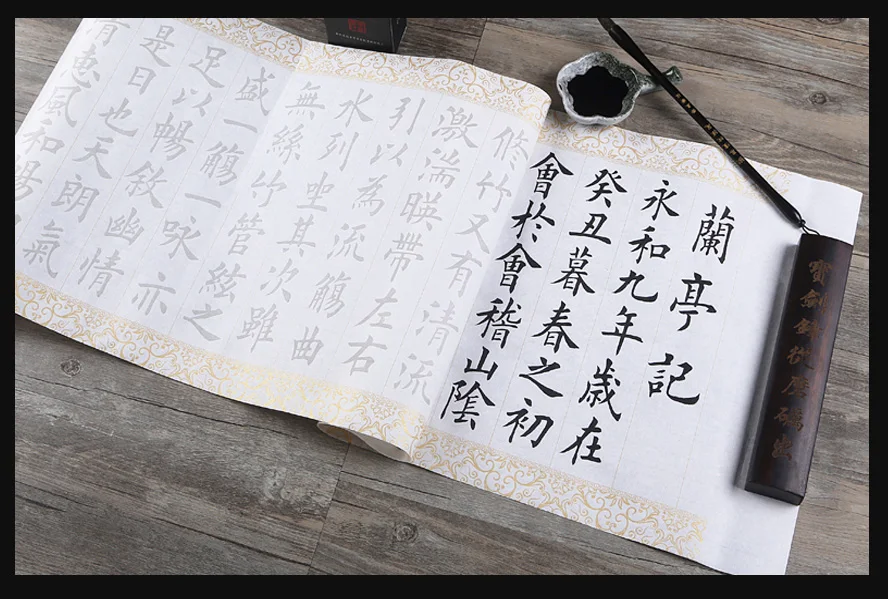 蘭亭記
永和九年歲在
癸丑暮春之初
會於會稽山陰
修竹又有清流
激湍暎帶左右
引以為流觴曲
水列坐其次雖
無絲竹管絃之
盛一觴一詠亦
足以暢敘幽情
是日也天朗氣
清惠風和暢
寶劍鋒從磨礪出